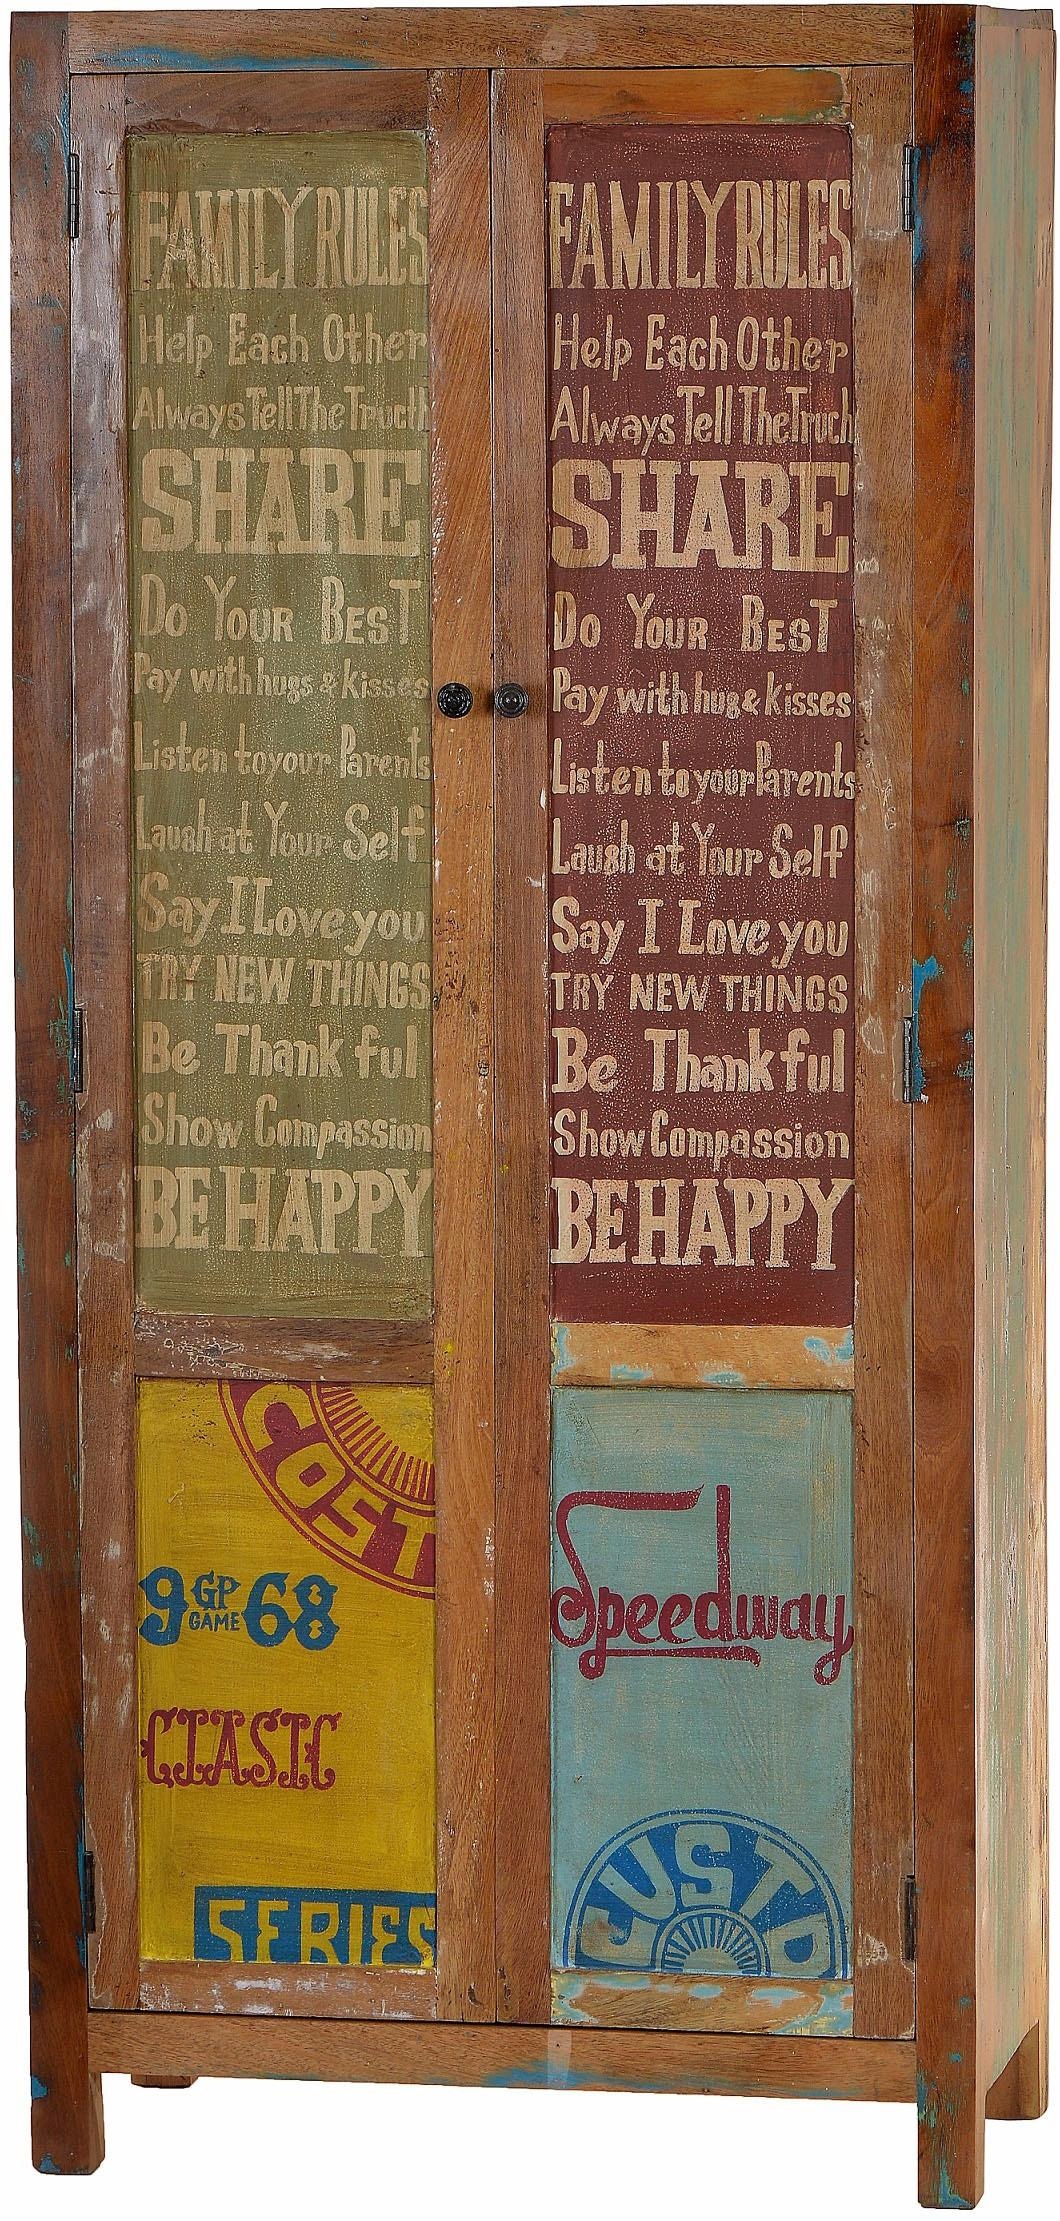 FAMILY RULES
Help Each Other
Always Tell The Tructh
SHARE
Do YouR BesT
Pay with hugs & kisses
Listen to your Parents
Laugh at Your Self
Say I Love you
TRY NEW THINGS
Be Thank ful
Show Compassion
BE HAPPY
COST
9 GP GAME 68
CIASIC
SERIES
FAMILY RULES
Help Each Other
Always Tell The Truch
SHARE
Do YouR BesT
Pay with hug & kisses
Listen to your Parents
Laugh at Your Self
Say I Love you
TRY NEW THINGS
Be Thank ful
Show Compassion
BE HAPPY
Speedway
CUSTO